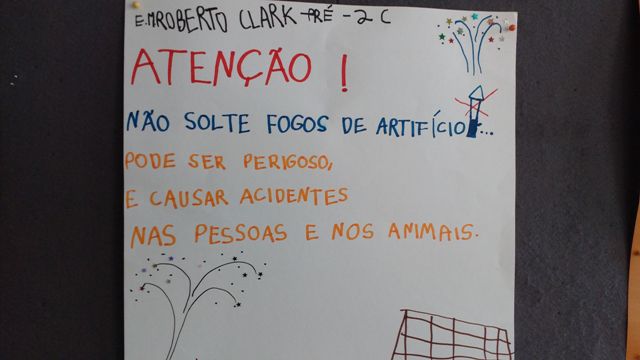 E.M ROBERTO CLARK - PRÉ - 2 C
ATENÇÃO !
NÃO SOLTE FOGOS DE ARTIFÍCIO ...
PODE SER PERIGOSO,
E CAUSAR ACIDENTES
NAS PESSOAS E NOS ANIMAIS.